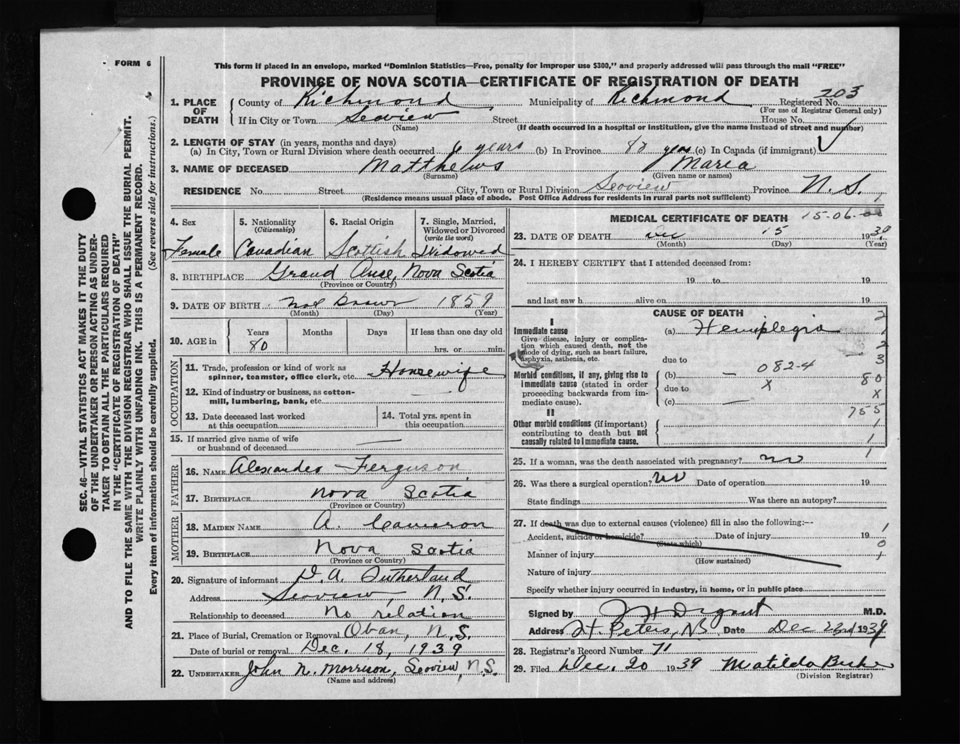 FORM 6
This form if placed in an envelope, marked "Dominion Statistics—Free, penalty for improper use $300," and properly addressed will pass through the mail "FREE"
PROVINCE OF NOVA SCOTIA—CERTIFICATE OF REGISTRATION OF DEATH
1. PLACE OF DEATH County of Richmond Municipality of Richmond Registered No. 203
(For use of Registrar General only)
If in City or Town Seaview Street House No.
(Name) (If death occurred in a hospital or institution, give the name instead of street and number)
2. LENGTH OF STAY (in years, months and days)
(a) In City, Town or Rural Division where death occurred 6 years (b) In Province 80 years (c) In Canada (if immigrant)
3. NAME OF DECEASED Matthews Maria
(Surname) (Given name or names)
RESIDENCE No. Street City, Town or Rural Division Seaview Province N.S.
(Residence means usual place of abode. Post Office Address for residents in rural parts not sufficient)
4. Sex 5. Nationality (Citizenship) 6. Racial Origin 7. Single, Married, Widowed or Divorced (write the word)
Female Canadian Scottish Widowed
8. BIRTHPLACE Grand Anse, Nova Scotia
(Province or Country)
9. DATE OF BIRTH Not known 1859
(Month) (Day) (Year)
10. AGE in Years Months Days If less than one day old
80 hrs. or min.
OCCUPATION
11. Trade, profession or kind of work as spinner, teamster, office clerk, etc. Housewife
12. Kind of industry or business, as cotton-mill, lumbering, bank, etc. —
13. Date deceased last worked at this occupation 14. Total yrs. spent in this occupation
15. If married give name of wife or husband of deceased —
FATHER
16. NAME Alexander Ferguson
17. BIRTHPLACE Nova Scotia
(Province or Country)
MOTHER
18. MAIDEN NAME A. Cameron
19. BIRTHPLACE Nova Scotia
(Province or Country)
20. Signature of informant D.A. Sutherland
Address Seaview, N.S.
Relationship to deceased No relation
21. Place of Burial, Cremation or Removal Oban, N.S.
Date of burial or removal Dec. 18, 1939
22. UNDERTAKER John N. Morrison, Seaview, N.S.
(Name and address)
MEDICAL CERTIFICATE OF DEATH 15-06
23. DATE OF DEATH Dec 15 1939
(Month) (Day) (Year)
24. I HEREBY CERTIFY that I attended deceased from:
19 to 19
and last saw h alive on 19
CAUSE OF DEATH
I
Immediate cause (a) Hemiplegia
Give disease, injury or complication which caused death, not the mode of dying, such as heart failure, asphyxia, asthenia, etc.
due to
Morbid conditions, if any, giving rise to immediate cause (stated in order proceeding backwards from immediate cause). (b) — 082-4
due to X
(c) —
II
Other morbid conditions (if important) contributing to death but not causally related to immediate cause.
2
1
2
3
80
X
755
1
1
1
25. If a woman, was the death associated with pregnancy? no
26. Was there a surgical operation? no Date of operation 19
State findings Was there an autopsy?
27. If death was due to external causes (violence) fill in also the following:—
Accident, suicide or homicide? Date of injury 19
(State which)
Manner of injury
(How sustained)
Nature of injury
Specify whether injury occurred in industry, in home, or in public place
1
0
1
Signed by M.D.
Address St. Peters, NS Date Dec 23rd 1939
28. Registrar's Record Number 71
29. Filed Dec. 20 1939 Matilda
(Division Registrar)
SEC. 46—VITAL STATISTICS ACT MAKES IT THE DUTY
OF THE UNDERTAKER OR PERSON ACTING AS UNDER-
TAKER TO OBTAIN ALL THE PARTICULARS REQUIRED
IN THE "CERTIFICATE OF REGISTRATION OF DEATH"
AND TO FILE THE SAME WITH THE DIVISION REGISTRAR WHO SHALL ISSUE THE BURIAL PERMIT.
WRITE PLAINLY WITH UNFADING INK. THIS IS A PERMANENT RECORD.
Every item of information should be carefully supplied. (See reverse side for instructions.)